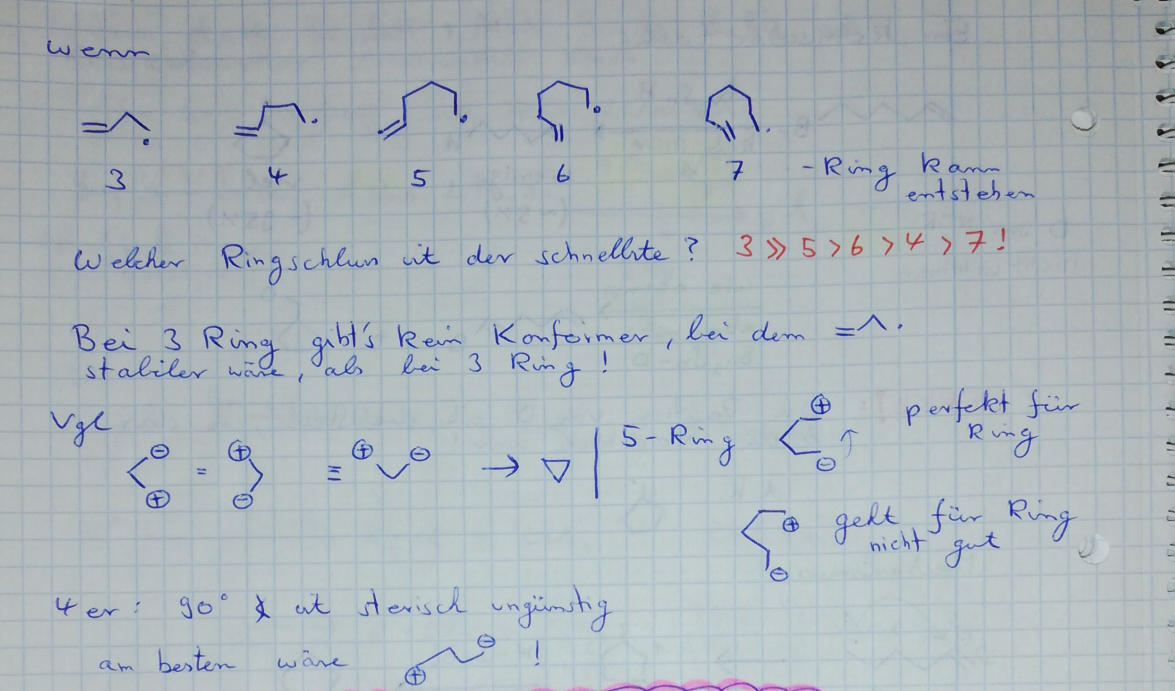 wenn
3 4 5 6 7 -Ring kann
entstehen
Welcher Ringschluss ist der schnellste? 3 >> 5 > 6 > 4 > 7!
Bei 3 Ring gibt's kein Konformer, bei dem
stabiler wäre, als bei 3 Ring!
Vgl
⊖ ⊕ = ⊕ ⊖ ≡ ⊕ ⊖ →
5-Ring ⊕ ⊖ perfekt für
Ring
⊕ ⊖ geht für Ring
nicht gut
4er: 90° ∢ ist sterisch ungünstig
am besten wäre ⊕ ⊖ !